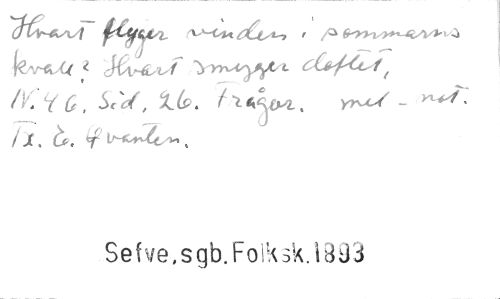 Hvart flyger vinden i sommarns
kväll? Hvart smyger doftet,
N. 46. Sid. 26. Frågor. mel - not.
Tx. E. Qvanten.
Sefve, sgb. Folksk. 1893